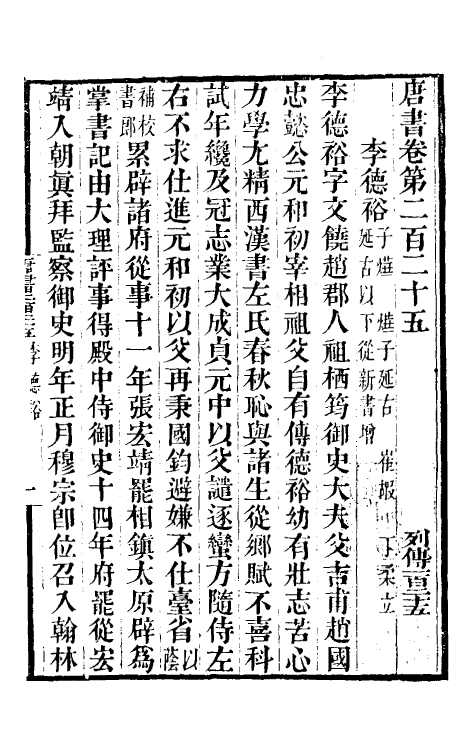 唐書卷第二百二十五　列傳一百七十五
李德裕 子燁 燁子延古 崔嘏 丁柔立
延古以下從新書增
李德裕字文饒趙郡人祖栖筠御史大夫父吉甫趙國
忠懿公元和初宰相祖父自有傳德裕幼有壯志苦心
力學尤精西漢書左氏春秋恥與諸生從鄉賦不喜科
試年纔及冠志業大成貞元中以父譴逐蠻方隨侍左
右不求仕進元和初以父再秉國鈞避嫌不仕臺省以蔭
補校書郎累辟諸府從事十一年張宏靖罷相鎮太原辟爲
掌書記由大理評事得殿中侍御史十四年府罷從宏
靖入朝眞拜監察御史明年正月穆宗卽位召入翰林
李德裕
一